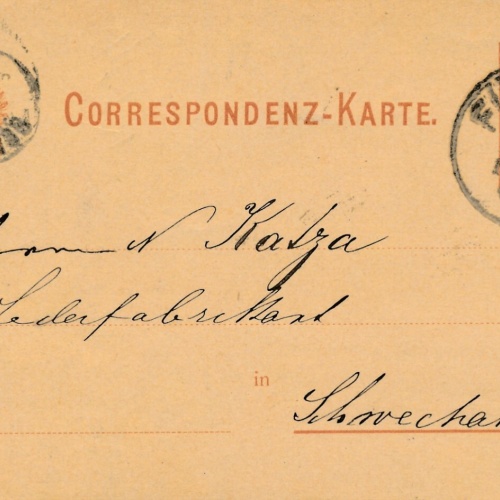 CORRESPONDENZ-KARTE.
Herrn N Katza
Lederfabrikant
in
Schwechat